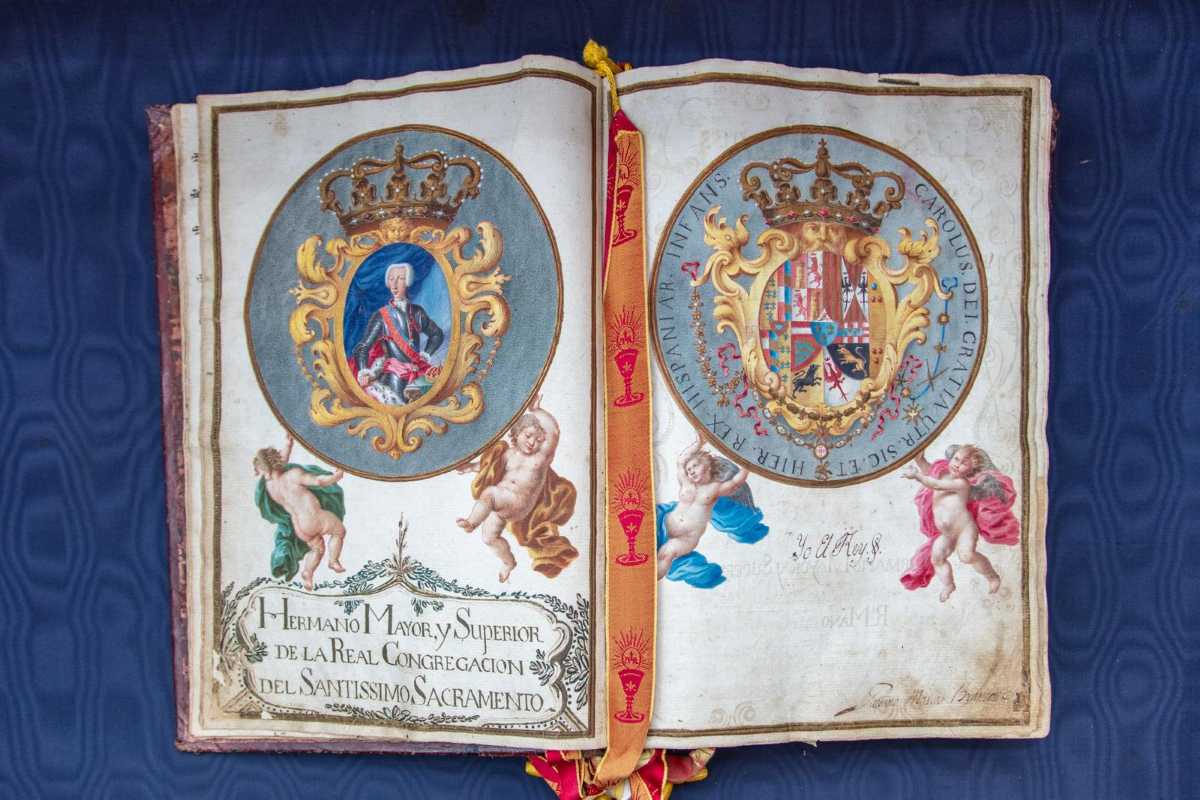 HERMANO MAYOR, Y SUPERIOR
DE LA REAL CONGREGACION
DEL SANTISSIMO SACRAMENTO
CAROLUS. DEI. GRATIA UTR. SIC. ET HIER. REX. HISPANIAR. INFANS.
Yo El Rey.